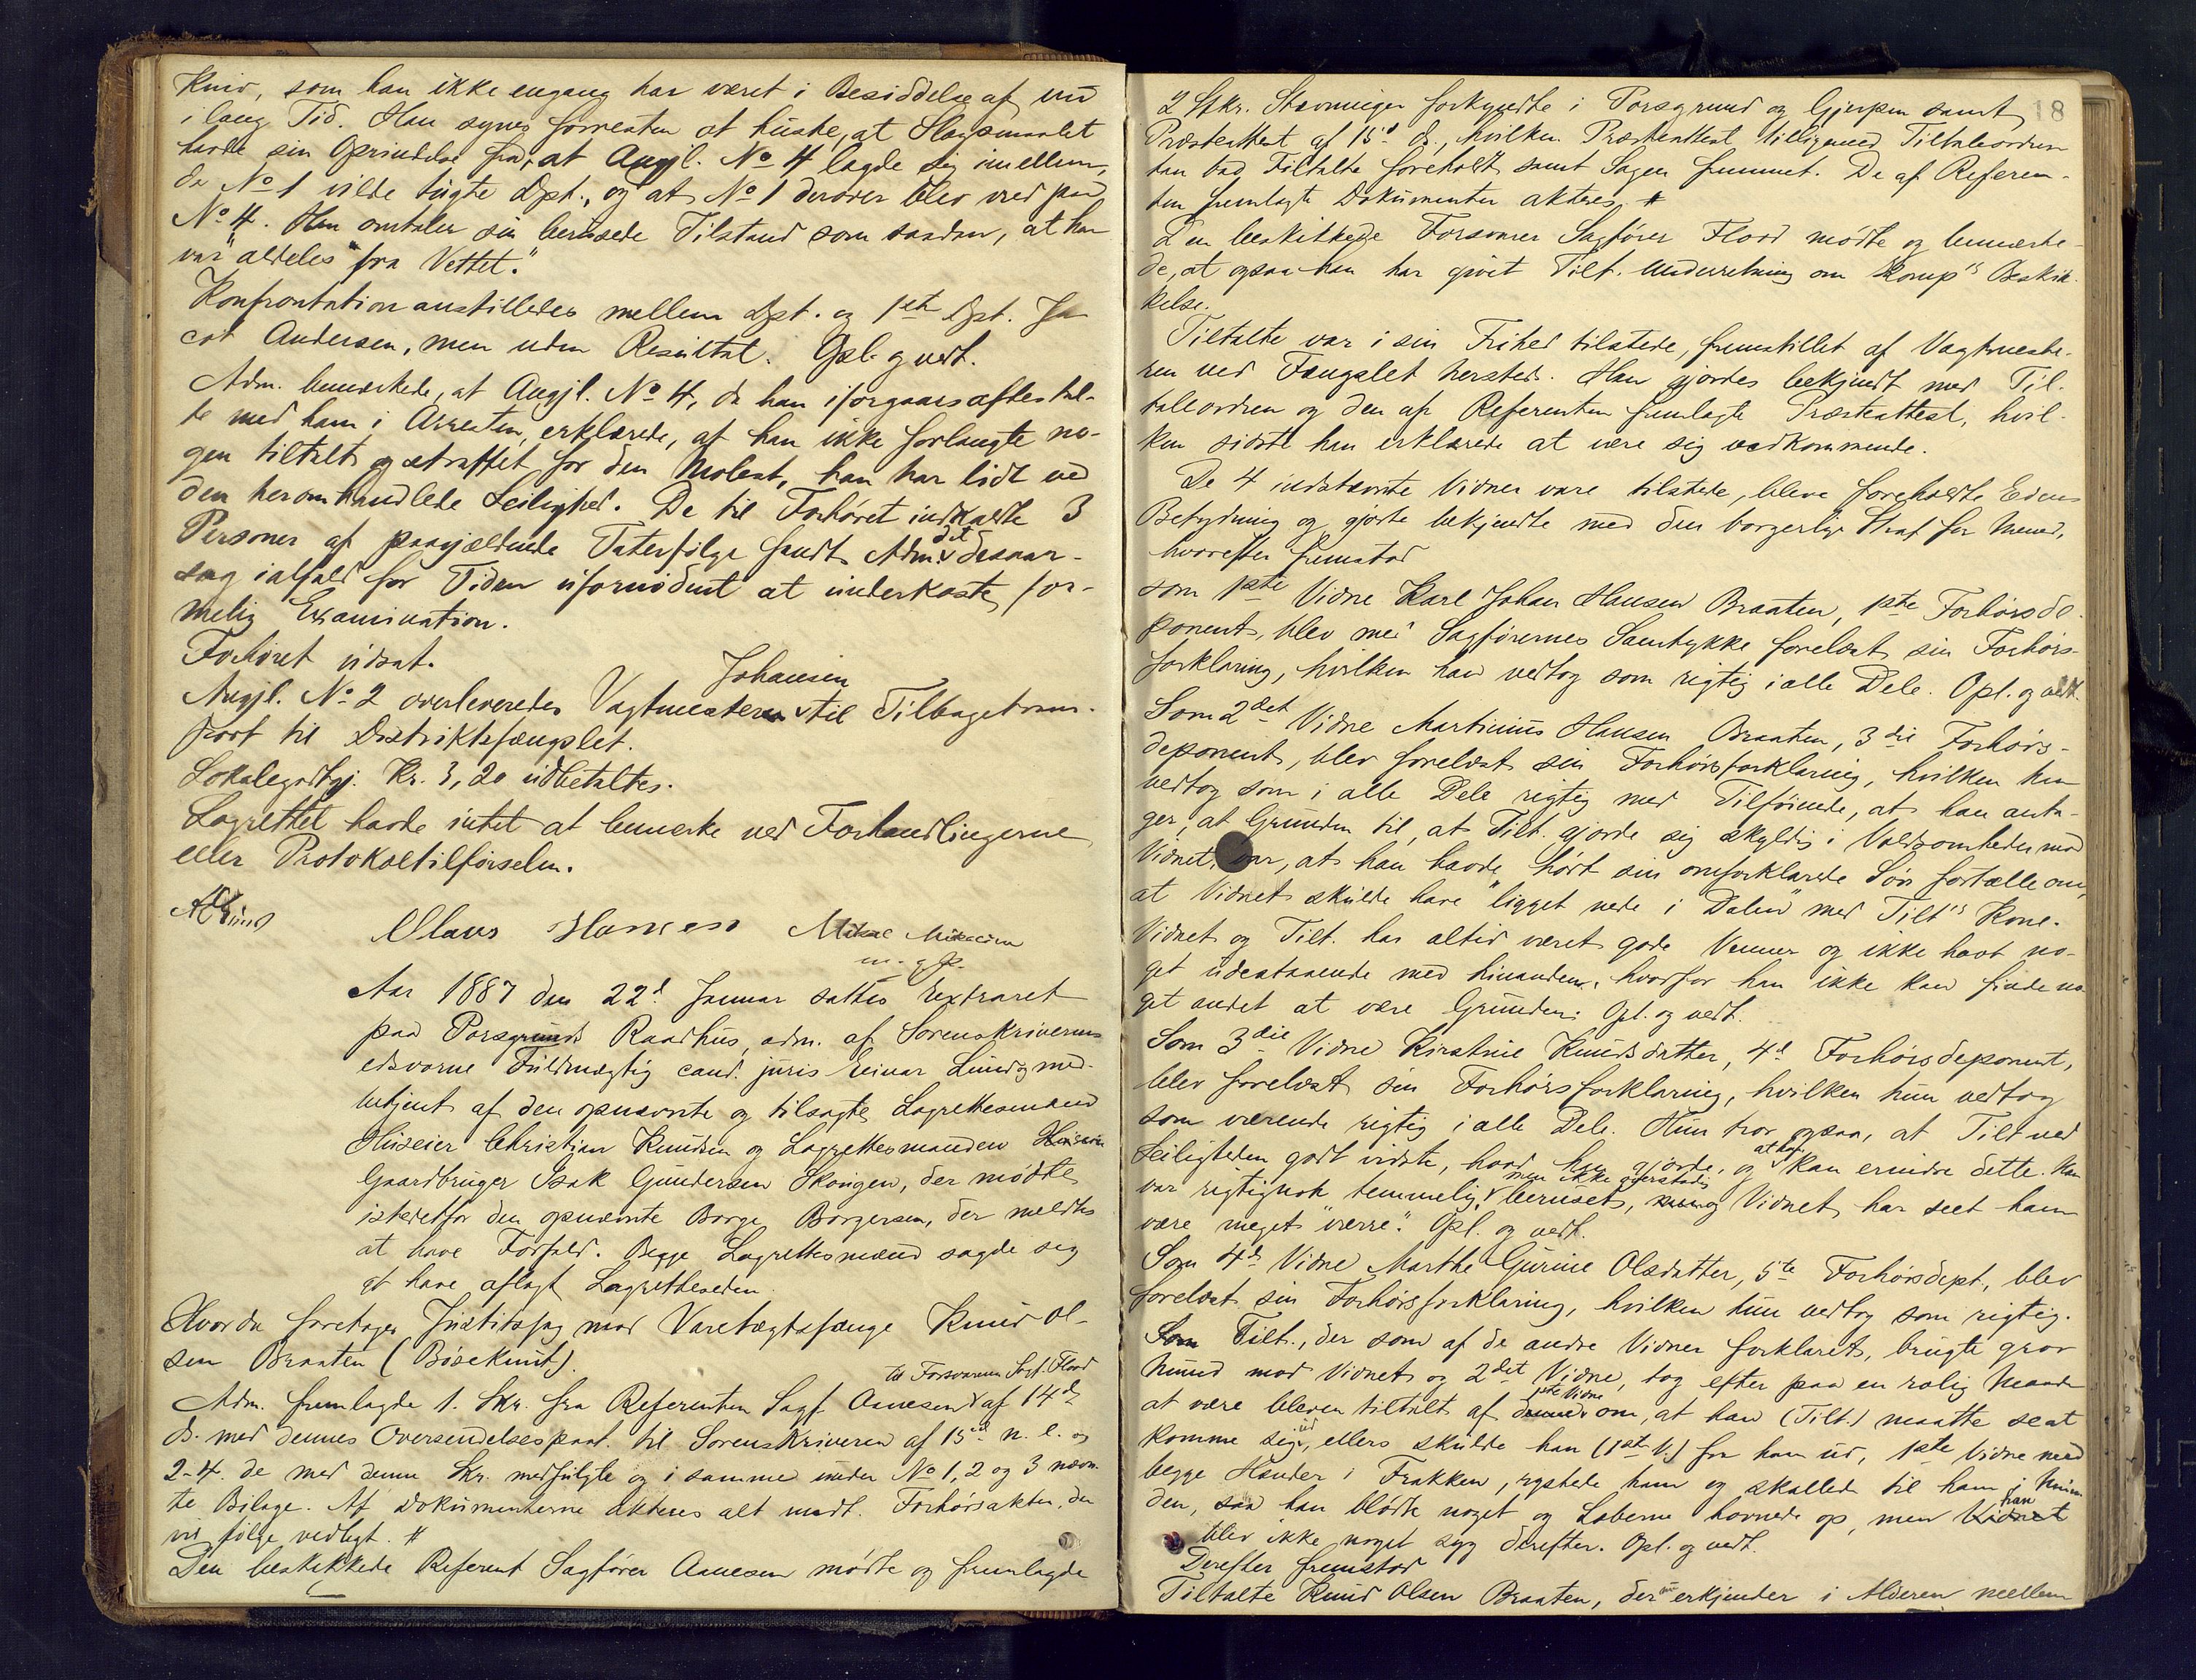 Kniv, som han ikke engang har været i Besiddelse af nu
i lang Tid. Han synes forresten at huske, at Slagsmaalet
havde sin Oprindelse fra, at Angjl. No 4 lagde sig imellem,
da No 1 vilde tugte Dpt., og at No 1 derover blev vred paa
No 4. Han omtaler sin berusede Tilstand som saadan, at han
var "aldeles fra Vettet."
Konfrontation anstilledes mellem Dpt. og 1ste Dpt. Ja
cob Andersen, men uden Resultat. Opl. og vedt.
Adm. bemærkede, at Angjl. No 4, da han iforgaars aftes tal-
te med ham i Arresten, erklærede, at han ikke forlangte no-
gen tiltalt og straffet for den Molest, han har lidt ved
den heromhandlede Leilighed. De til Forhøret indkaldte 3
Personer af paagjældende Taterfølge fandt Adm. det desaar-
sag ialfald for Tiden ufornødent at underkaste for-
melig Examination.
Forhøret udsat.
Angjl. No 2 overleveredes Vagtmester Johansen til Tilbagetrans-
port til Distriktsfængslet.
Lokalegodtgj. Kr. 3,20 udbetaltes.
Lagrettet havde intet at bemærke ved Forhandlingerne
eller Protokoltilførselen.
Olaus Hansen Mikael Mikaelsen
m. f. P.
Aar 1887 den 22d Januar sattes Extraret
paa Porsgrunds Raadhus, adm. af Sorenskriverens
edsvorne Fuldmægtig cand. juris Einar Lund og med-
betjent af den opnævnte og tilsagte Lagrettesmand
Huseier Christian Knudsen og Lagrettesmanden
Gaardbruger Isak Gundersen Skougen, der mødte
istedetfor den opnævnte Borge Borgersen, der meldtes
at have Forfald. Begge Lagrettesmænd sagde sig
at have aflagt Lagretteseden.
Hvorda foretoges Justitssag mod Varetægtsfange Knud Ol-
sen Braaten (Bøseknut).
Adm. fremlagde 1. Skr. fra Referenten Sagf. Aanesen til Forsvareren Sagf. Flood af 14de
ds. med dennes Oversendelsespaat. til Sorenskriveren af 15de n. e. og
2-4. de med denne Skr. medfulgte og i samme under No 1, 2 og 3 nævn-
te Bilage. Af Dokumenterne akteres alt undt. Forhørsakten, der
vil følge vedlagt. #
Den beskikkede Referent Sagfører Aanesen mødte og fremlagde
18
2 Stkr. Stevninger forkyndte i Porsgrund og Gjerpen samt
Præsteattest af 15d ds., hvilken Præsteattest tilligemed Tiltaleordren
han bad Tiltalte foreholdt samt Sagen fremmet. De af Referen-
ten fremlagte Dokumenter akteres. #
Den beskikkede Forsvarer Sagfører Flood mødte og bemærke-
de, at ogsaa han har givet Tilt. Underretning om Komp's Beskik-
kelse.
Tiltalte var i sin Frihed tilstede, fremstillet af Vagtmeste-
ren ved Fængslet hersteds. Han gjordes bekjendt med Til-
taleordren og den af Referenten fremlagte Præsteattest, hvil-
ken sidste han erklærede at være sig vedkommende.
De 4 indstævnte Vidner vare tilstede, bleve foreholdte Edens
Betydning og gjorte bekjendte med den borgerlige Straf for Mened,
hvorefter fremstod
som 1ste Vidne Karl Johan Hansen Braaten, 1ste Forhørsde-
ponent, blev med Sagførernes Samtykke forelæst sin Forhørs-
forklaring, hvilken han vedtog som rigtig i alle Dele. Opl. og vedt.
Som 2det Vidne Martinius Hansen Braaten, 3die Forhørs-
deponent, blev forelæst sin Forhørsforklaring, hvilken han
vedtog som i alle Dele rigtig med Tilføiende, at han anta-
ger, at Grunden til, at Tilt. gjorde sig skyldig i Voldsomheder mod
Vidnet, var, at han havde hørt sin omforklarede Søn fortælle om,
at Vidnet skulde have "ligget nede i Dalen" med Tilt's Kone.
Vidnet og Tilt. har altid været gode Venner og ikke havt no-
get udestaaende med hinanden, hvorfor han ikke kan finde no-
get andet at være Grunden. Opl. og vedt.
Som 3die Vidne Kirstine Knudsdatter, 4d Forhørsdeponent,
blev forelæst sin Forhørsforklaring, hvilken hun vedtog
som værende rigtig i alle Dele. Hun tror ogsaa, at Tilt ved
Leiligheden godt vidste, hvad han gjorde, og at han kan erindre dette. Han
var rigtignok temmelig, men ikke overstadig beruset, og Vidnet har seet ham
være meget "værre". Opl. og vedt.
Som 4d Vidne Marthe Gurine Olsdatter, 5te Forhørsdept., blev
forelæst sin Forhørsforklaring, hvilken hun vedtog som rigtig.
Tilt., der som af de andre Vidner forklaret, brugte grov
Mund mod Vidnet og 2det Vidne, tog efter paa en rolig Maade
at være bleven tiltalt af 1ste Vidne om, at han (Tilt.) maatte se at
komme sig ud, ellers skulde han (1ste V.) faa ham ud, 1ste Vidne med
begge Hænder i Frakken, rystede ham og skallede til ham i Mun-
den, saa han blødte noget og Læberne hovnede op, men han
blev ikke noget syg derefter. Opl. og vedt.
Derefter fremstod
Tiltalte Knud Olsen Braaten, der nu erkjender i Alderen mellem